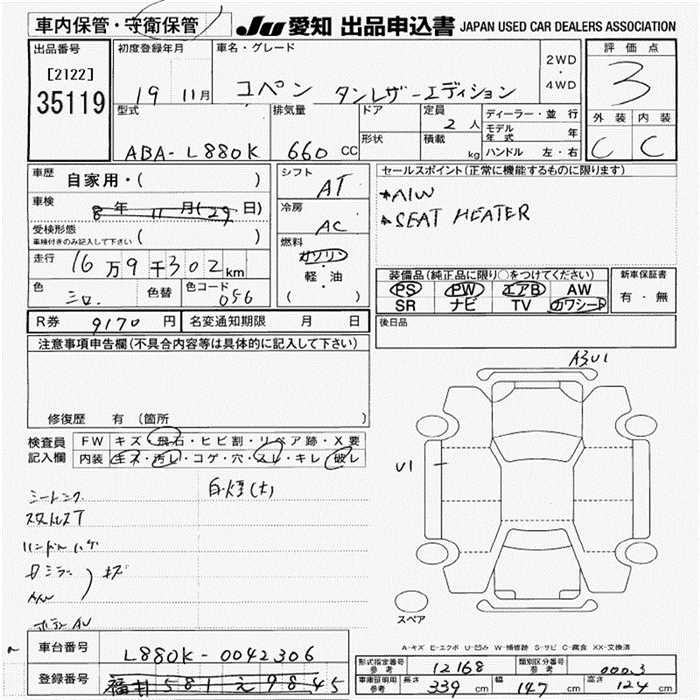 車内保管・守衛保管
JU 愛知 出品申込書 JAPAN USED CAR DEALERS ASSOCIATION
出品番号
[2122]
35119
初度登録年月
19 11月
車名・グレード
コペン タンレザーエディション
2WD
・
4WD
評価点
3
外装 内装
C C
型式
ABA-L880K
排気量
660 CC
ドア
形状
定員
2 人
積載
kg
ディーラー・並行
モデル年式 年
ハンドル 左・右
車歴
自家用・( )
車検
8年11月(29日)
受検形態
車検付きのみ記入して下さい ( )
走行
16万9千302km
色
シロ.
色替
色コード
056
シフト
AT
冷房
AC
燃料
ガソリン
・
軽・油
( )
セールスポイント(正常に機能するものに限ります)
*A/W
*SEAT HEATER
装備品(純正品に限り○をつけてください)
PS PW エアB AW
SR ナビ TV カワシート
新車保証書
有・無
R券 9170円
名変通知期限 月 日
後日品
注意事項申告欄(不具合内容等は具体的に記入して下さい)
修復歴 有 (箇所 )
検査員
記入欄
FW キズ・飛石・ヒビ割・リペア跡・X要
内装 キズ・汚レ・コゲ・穴・スレ・キレ・破レ
白煙(大)
A3U1
U1
スペア
A-キズ E-エクボ U-凹み W-補修跡 S-サビ C-腐食 XX-交換済
車台番号
L880K-0042306
登録番号
福井581え9845
形式指定番号
参考
12168
類別区分番号
参考
0003
車庫証明用
参考
長さ 339 cm 幅 147 cm 高さ 124 cm